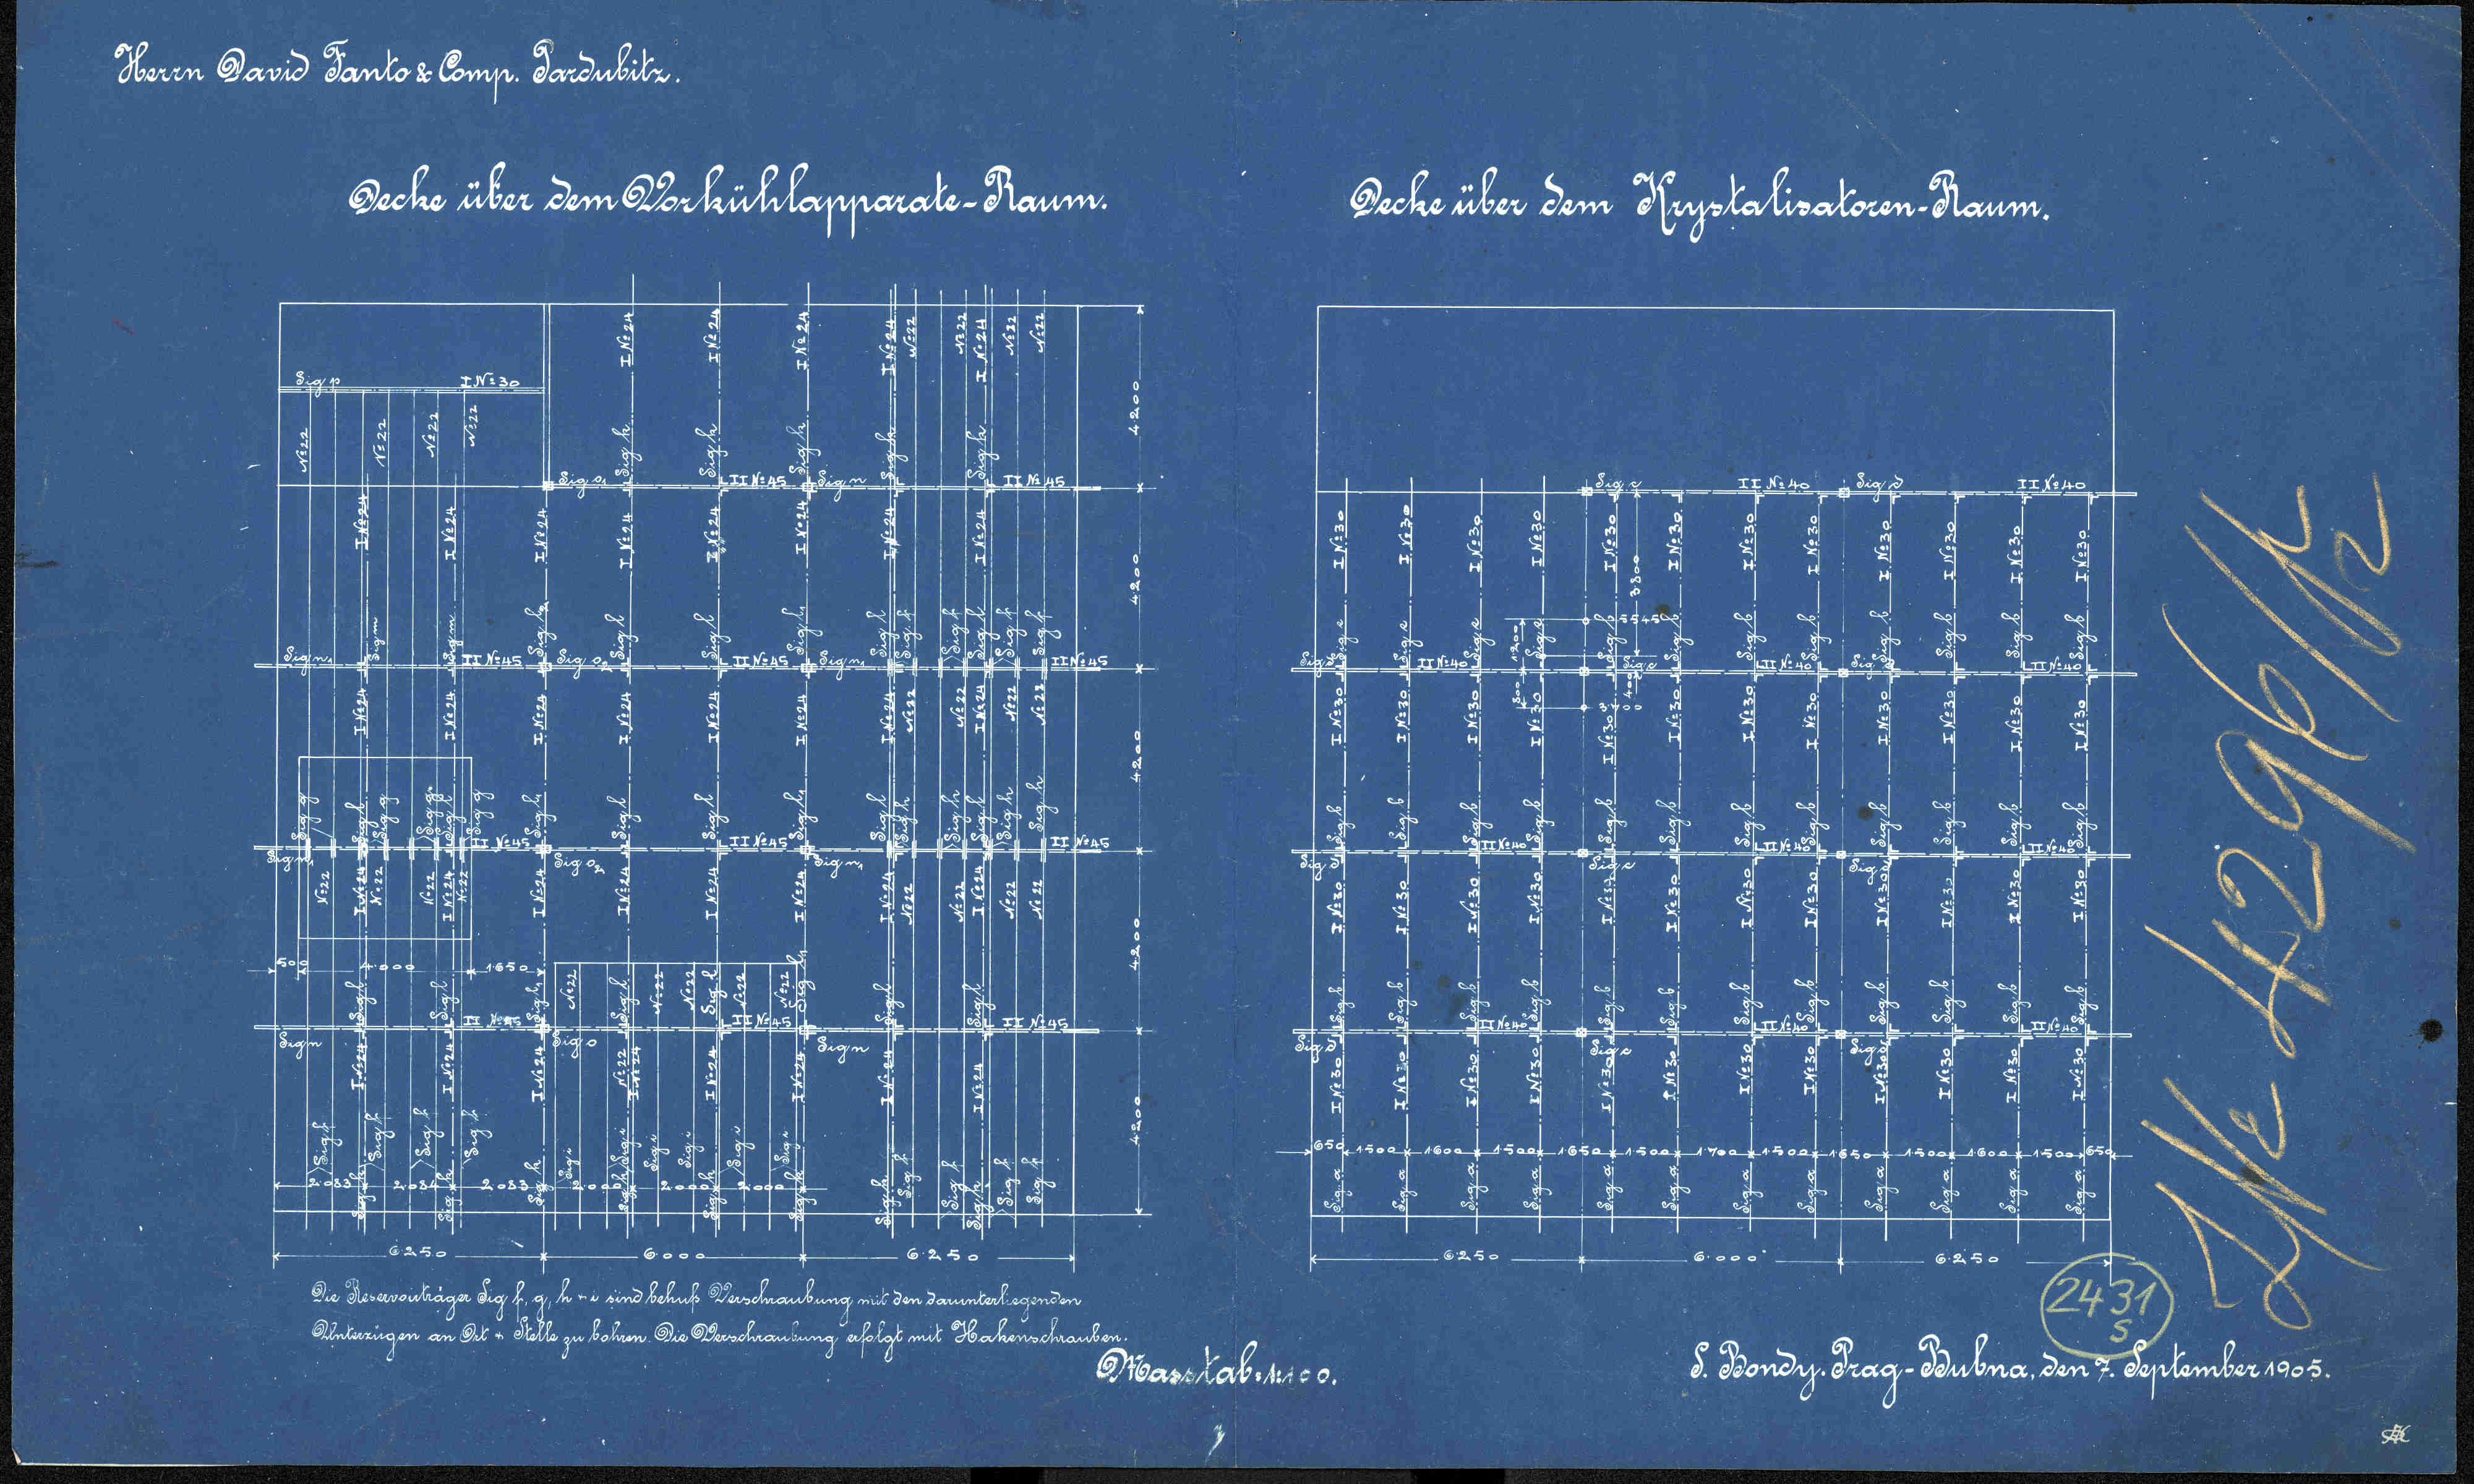 Herrn David Fanto & Comp. Pardubitz.
Decke über dem Vorkühlapparate-Raum.
Decke über dem Krystalisatoren-Raum.
I №24 I №24 I №24 I №24 №22 №22 I №24 №22 №22
Sig p I №30
№22 №22 №22 №22
Sig k Sig k Sig k Sig k Sig k
4200
Sig o₁ II №45 Sig n II №45
I №24 I №24 I №24 I №24 I №24 I №24 I №24 I №24
4200
Sig m Sig m
Sig n₁ II №45 Sig o₂ II №45 Sig n₁ II №45
I №24 I №24 I №24 I №24 I №24 I №24 I №24 №22 №22 I №24 №22 №22
4200
Sig g Sig l Sig g Sig g Sig l Sig g Sig l₁ Sig l Sig l Sig l₁ Sig l Sig h Sig h Sig l Sig h Sig h
Sig n₁ II №45 Sig o₂ II №45 Sig n₁ II №45
№22 I №24 №22 №22 I №24 №22 I №24 I №24 I №24 I №24 I №24 №22 №22 I №24 №22 №22
4200
500 4000 1650
№22 №22 №22 №22 №22
Sig l Sig l Sig l₁ Sig l Sig l Sig l₁ Sig l Sig l
Sig n II №45 Sig o II №45 Sig n II №45
I №24 I №24 I №24 №22 I №24 I №24 I №24 I №24 I №24
4200
Sig f Sig f Sig f Sig f Sig i Sig i Sig i Sig i Sig i Sig i Sig f Sig f Sig f Sig f
2083 2084 2083 2000 2000 2000
Sig k Sig k Sig k Sig k Sig k Sig k Sig k Sig k
6250 6000 6250
Die Reservouträger Sig f, g, h + i sind behufs Verschraubung mit den darunterliegenden
Unterzügen an Ort + Stelle zu bohren. Die Verschraubung erfolgt mit Hakenschrauben.
Sig c II №40 Sig d II №40
I №30 I №30 I №30 I №30 I №30 I №30 I №30 I №30 I №30 I №30 I №30 I №30
3800
1200
Sig e Sig e Sig e Sig e Sig b Sig b Sig b Sig b Sig b Sig b Sig b Sig b
II №40 Sig c II №40 II №40
800 400
I №30 I №30 I №30 I №30 I №30 I №30 I №30 I №30 I №30 I №30 I №30 I №30
Sig b Sig b Sig b Sig b Sig b Sig b Sig b Sig b Sig b Sig b Sig b Sig b
Sig d II №40 Sig c II №40 Sig d II №40
I №30 I №30 I №30 I №30 I №30 I №30 I №30 I №30 I №30 I №30 I №30 I №30
Sig b Sig b Sig b Sig b Sig b Sig b Sig b Sig b Sig b Sig b Sig b Sig b
Sig d II №40 Sig c II №40 Sig d II №40
I №30 I №30 I №30 I №30 I №30 I №30 I №30 I №30 I №30 I №30 I №30 I №30
650 1500 1600 1500 1650 1500 1700 1500 1650 1500 1600 1500 650
Sig a Sig a Sig a Sig a Sig a Sig a Sig a Sig a Sig a Sig a Sig a Sig a
6250 6000 6250
2431
S
Masstab: 1:100.
S. Bondy. Prag-Bubna, den 7. September 1905.